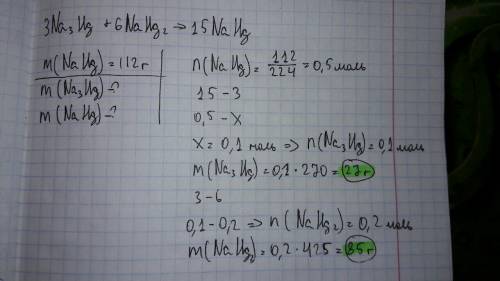 3Na₃Hg + 6NaHg₂ → 15NaHg
m(NaHg) = 112г
m(Na₃Hg) - ?
m(NaHg) - ?
n(NaHg) = 112/224 = 0,5 моль
15 - 3
0,5 - x
x = 0,1 моль => n(Na₃Hg) = 0,1 моль
m(Na₃Hg) = 0,1 · 270 = 27г
3 - 6
0,1 - 0,2 => n(NaHg₂) = 0,2 моль
m(NaHg₂) = 0,2 · 425 = 85г